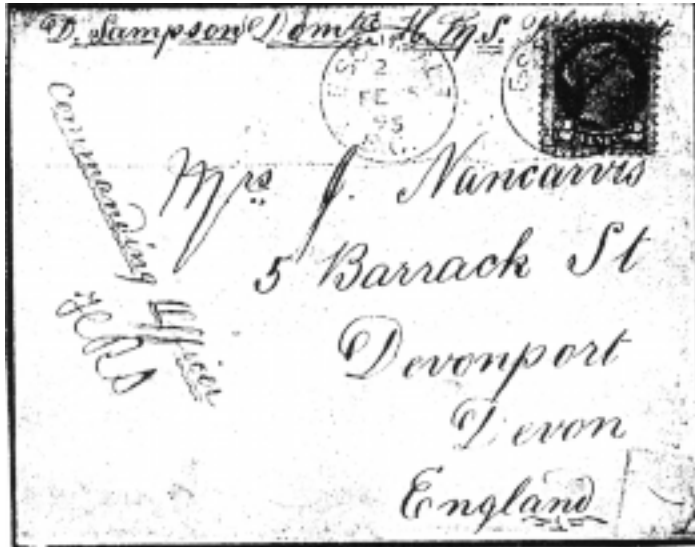 D. Sampson Domtc H.M.S.
ESQUIMALT
2
FE 5
95
B.C.
Commanding Officer
Mrs J. Nancarvis
5 Barrack St
Devonport
Devon
England